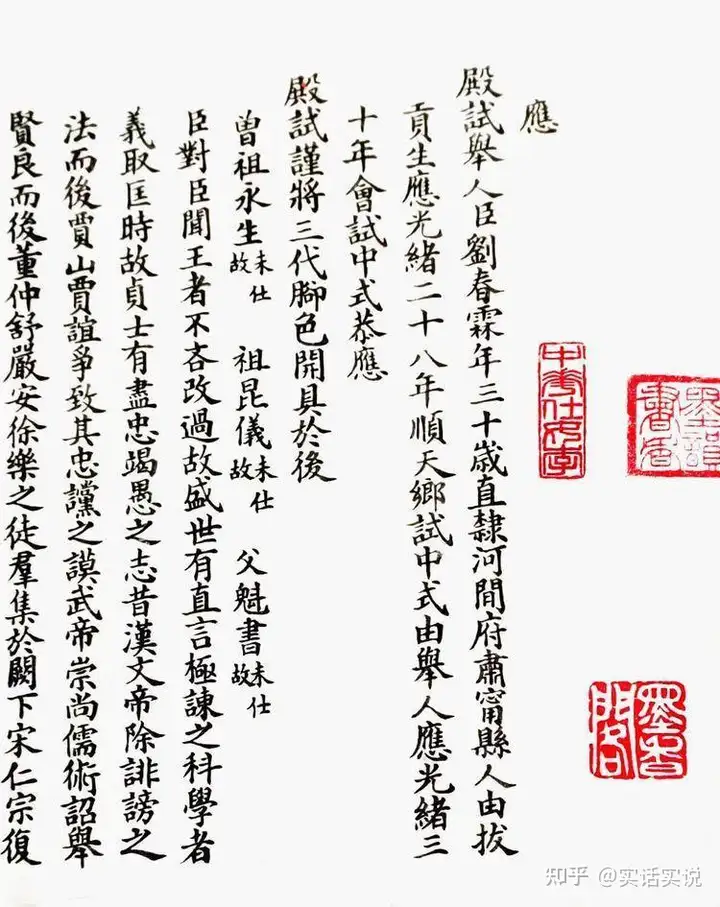 應
殿試舉人臣劉春霖年三十歲直隸河間府肅甯縣人由拔
貢生應光緒二十八年順天鄉試中式由舉人應光緒三
十年會試中式恭應
殿試謹將三代腳色開具於後
曾祖永生未仕故 祖昆儀未仕故 父魁書未仕故
臣對臣聞王者不吝改過故盛世有直言極諫之科學者
義取匡時故貞士有盡忠竭愚之志昔漢文帝除誹謗之
法而後賈山賈誼爭致其忠讜之謨武帝崇尚儒術詔舉
賢良而後董仲舒嚴安徐樂之徒羣集於闕下宋仁宗復
墨香閣
知乎 @实话实说